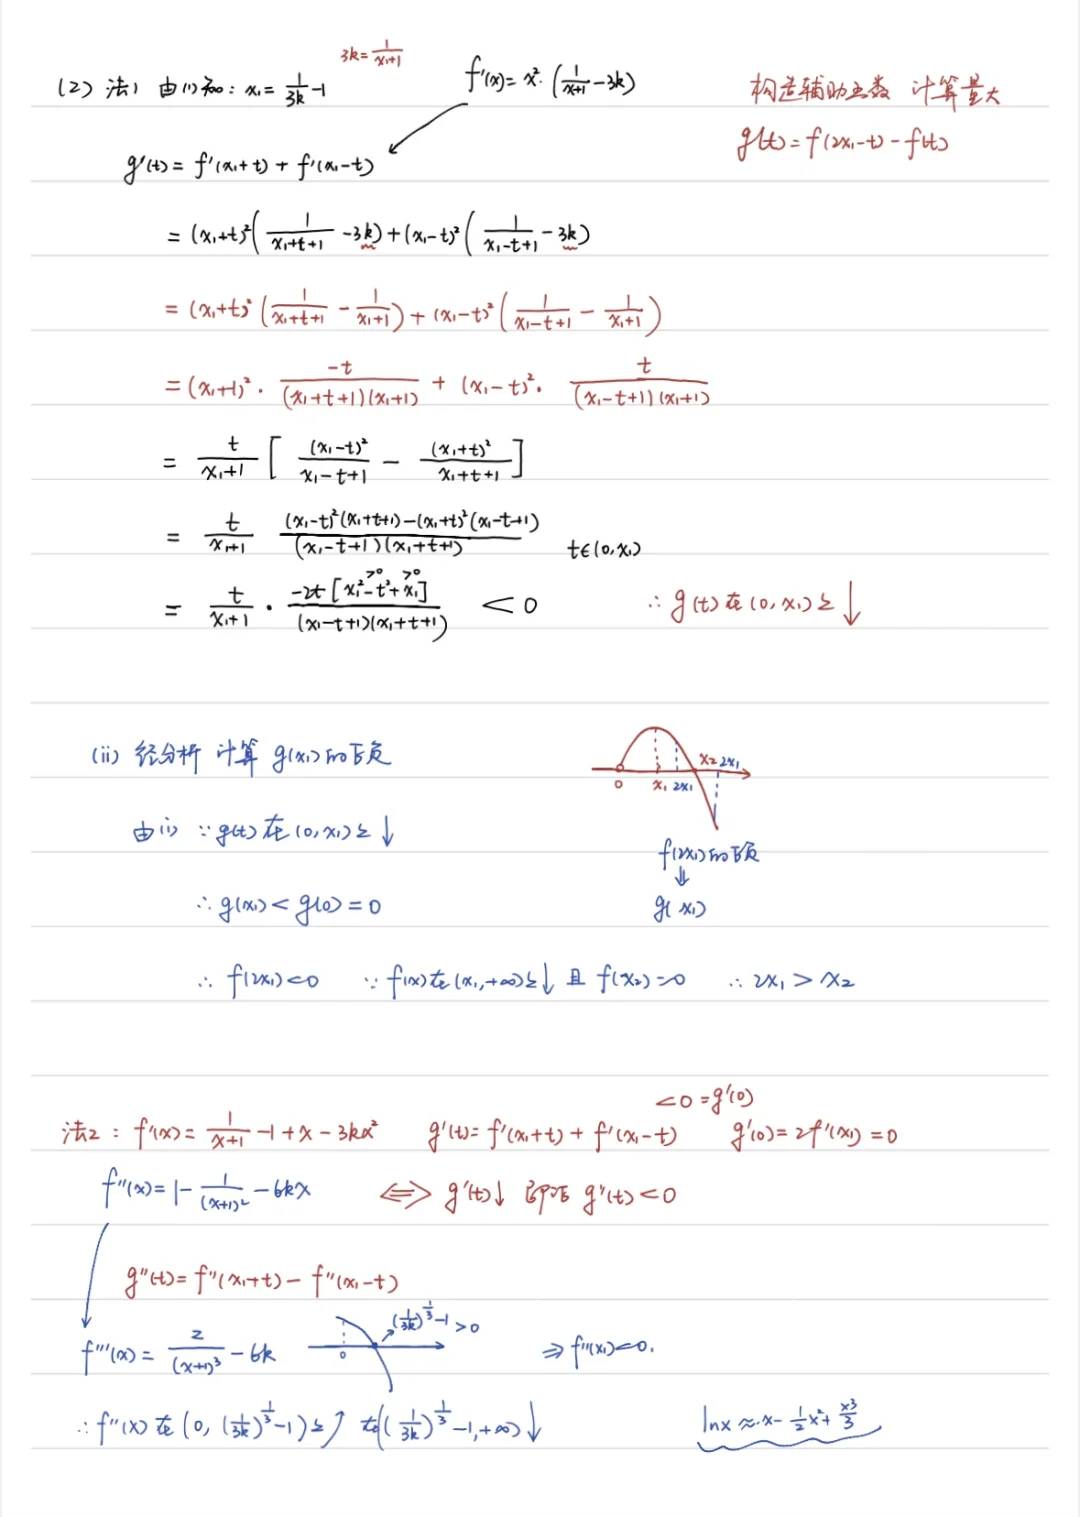 3k = 1/(x₁+1)
(2) 法1 由(1)知: x₁ = 1/(3k) - 1
f'(x) = x²·(1/(x+1) - 3k)
构造辅助函数 计算量大
g(t) = f(2x₁-t) - f(t)
g'(t) = f'(x₁+t) + f'(x₁-t)
= (x₁+t)²(1/(x₁+t+1) - 3k) + (x₁-t)²(1/(x₁-t+1) - 3k)
= (x₁+t)²(1/(x₁+t+1) - 1/(x₁+1)) + (x₁-t)²(1/(x₁-t+1) - 1/(x₁+1))
= (x₁+t)²· -t/((x₁+t+1)(x₁+1)) + (x₁-t)²· t/((x₁-t+1)(x₁+1))
= t/(x₁+1) [(x₁-t)²/(x₁-t+1) - (x₁+t)²/(x₁+t+1)]
= t/(x₁+1) ((x₁-t)²(x₁+t+1)-(x₁+t)²(x₁-t+1))/((x₁-t+1)(x₁+t+1)) t∈(0,x₁)
>0 >0
= t/(x₁+1) · -2t[x₁²-t²+x₁]/((x₁-t+1)(x₁+t+1)) < 0 ∴ g(t)在(0,x₁)上↓
(ii) 经分析 计算 g(x₁)的正负
x₂ 2x₁
0 x₁ 2x₁
由(i) ∵ g(t)在(0,x₁)上↓
f(2x₁)的正负
⇓
g(x₁)
∴ g(x₁) < g(0) = 0
∴ f(2x₁)<0 ∵ f(x)在(x₁,+∞)上↓ 且 f(x₂)=0 ∴ 2x₁ > x₂
<0 = g'(0)
法2: f'(x) = 1/(x+1) - 1 + x - 3kx² g'(t) = f'(x₁+t) + f'(x₁-t) g'(0) = 2f'(x₁) = 0
f''(x) = 1 - 1/(x+1)² - 6kx ⟺ g'(t)↓ 即证 g''(t) < 0
g''(t) = f''(x₁+t) - f''(x₁-t)
f'''(x) = 2/(x+1)³ - 6k
0 (1/3k)^(1/3) - 1 > 0
⇒ f''(x₁)<0.
∴ f''(x) 在(0, (1/3k)^(1/3) - 1)上↑ 在((1/3k)^(1/3) - 1, +∞)↓
lnx ≈ x - 1/2 x² + x³/3